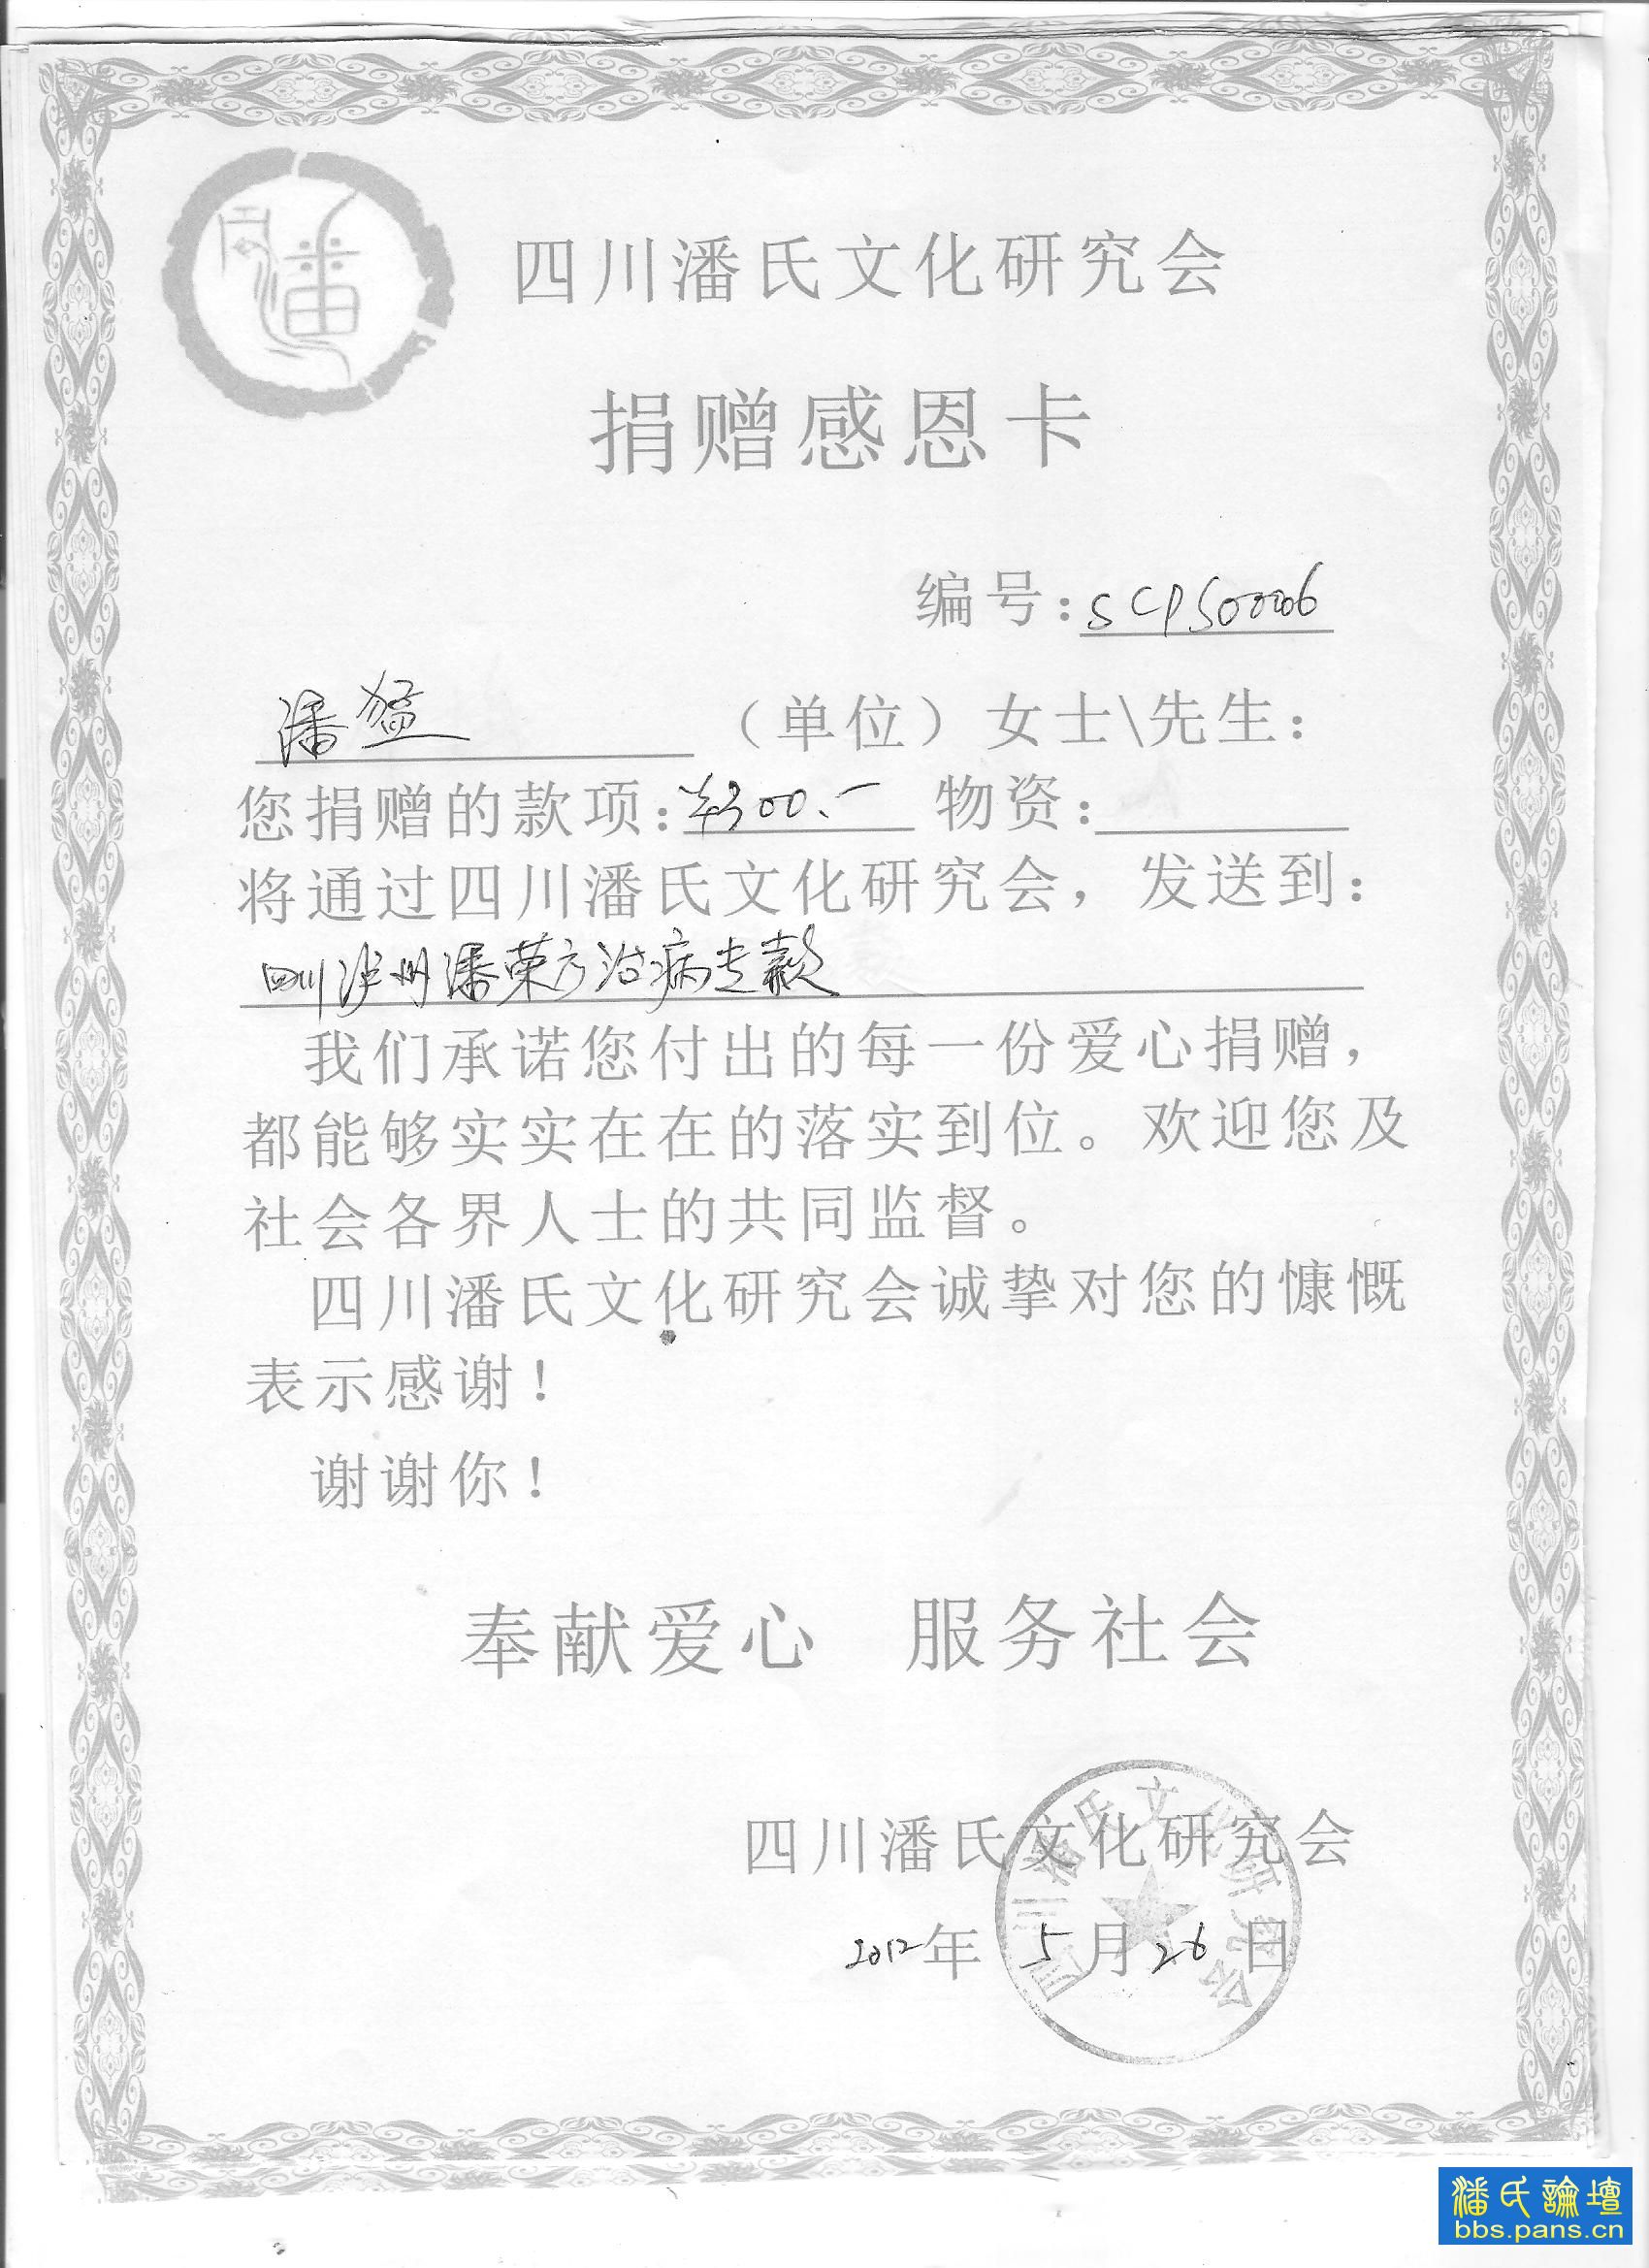 四川潘氏文化研究会
捐赠感恩卡
编号:SCPS00006
潘猛 （单位）女士\先生:
您捐赠的款项:¥300.- 物资:
将通过四川潘氏文化研究会，发送到:
四川泸州潘荣方治病专款
我们承诺您付出的每一份爱心捐赠，
都能够实实在在的落实到位。欢迎您及
社会各界人士的共同监督。
四川潘氏文化研究会诚挚对您的慷慨
表示感谢！
谢谢你！
奉献爱心 服务社会
四川潘氏文化研究会
2012年 5月26日
四川潘氏文化研究会
潘氏論壇
bbs.pans.cn